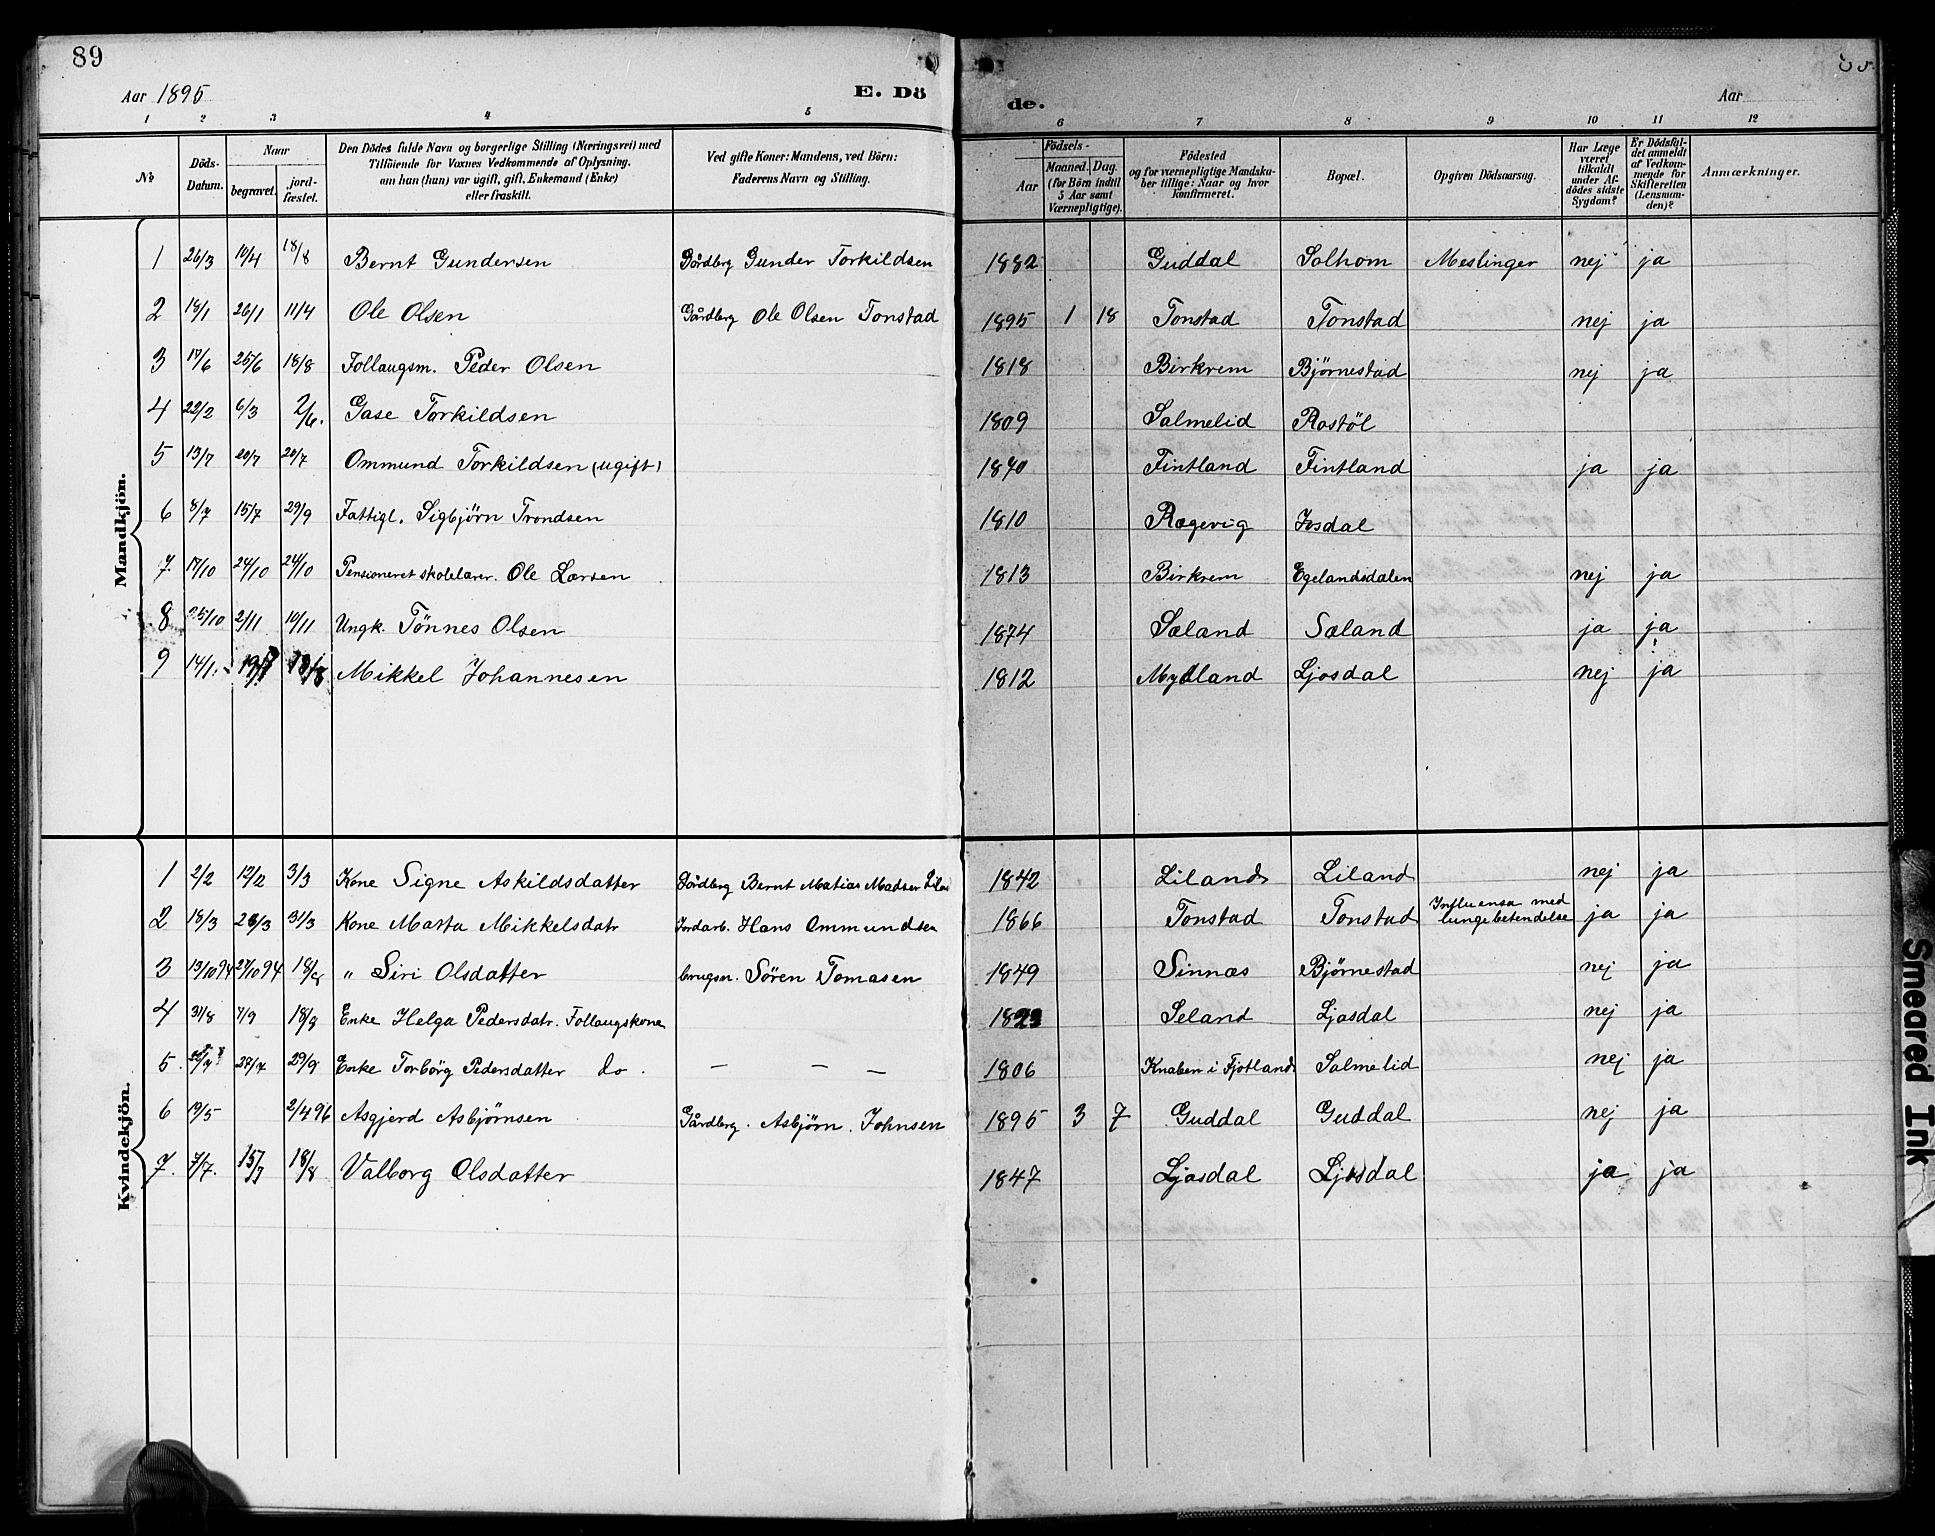 89
Aar 1895
E. Dö
de.
Aar
1 2 3 4 5 6 7 8 9 10 11 12
№ | Döds-Datum. | Naar begravet. | jord-fæstet. | Den Dödes fulde Navn og borgerlige Stilling (Næringsvei) med Tilföiende for Voxnes Vedkommende af Oplysning. om han (hun) var ugift, gift, Enkemand (Enke) eller fraskilt. | Ved gifte Koner: Mandens, ved Börn: Faderens Navn og Stilling. | Födsels- Aar | Maaned. Dag. (for Börn indtil 5 Aar samt Værnepligtige). | Födested og for værnepligtige Mandskaber tillige: Naar og hvor konfirmeret. | Bopæl. | Opgiven Dödsaarsag. | Har Læge været tilkaldt under Afdödes sidste Sygdom? | Er Dödsfaldet anmeldt af Vedkommende for Skifteretten (Lensmanden)? | Anmærkninger.
Mandkjön.
1 26/3 10/4 18/8 Bernt Gundersen Gårdbrg Gunder Torkildsen 1882 Guddal Solhom Meslinger nej ja
2 18/1 26/1 11/4 Ole Olsen Gårdbrg Ole Olsen Tonstad 1895 1 18 Tonstad Tonstad nej ja
3 17/6 25/6 18/8 Follaugsm. Peder Olsen 1818 Birkrem Bjørnestad nej ja
4 22/2 6/3 2/6. Gase Torkildsen 1809 Salmelid Rostöl
5 13/7 20/7 20/7 Ommund Torkildsen (ugift) 1840 Fintland Fintland ja ja
6 8/7 15/7 29/9 Fattigl. Sigbjørn Trondsen 1810 Rægevig Josdal
7. 17/10 24/10 24/10 Pensioneret skolelærer. Ole Larsen 1813 Birkrem Egelandsdalen nej ja
8 25/10 2/11 10/11 Ungk. Tönnes Olsen 1874 Sæland Sæland ja ja
9 14/1. Mikkel Johannesen 1812 Mydland Ljosdal nej ja
Kvindekjön.
1 2/2 12/2 3/3 Kone Signe Askildsdatter Gårdbrg Bernt Matias Madsen 1842 Liland Liland nej ja
2 18/3 28/3 31/3 Kone Marta Mikkelsdatr Jordarb. Hans Ommundsen 1866 Tonstad Tonstad Influensa med lungebetendelse ja ja
3 13/10 94 27/10 94 18/8 " Siri Olsdatter brugsn. Sören Tomasen 1849 Sinnæs Bjørnestad nej ja
4 31/8 7/9 18/9 Enke Helga Pedersdatr. Follaugskone Seland Ljosdal nej ja
5. 27/7 29/9 Enke Torbörg Pedersdatter do. — — — 1806 Knaben i Fjotland Salmelid nej ja
6 19/5 2/4 96 Asgjerd Asbjørnsen Gårdbrg. Asbjørn. Johnsen 1895 3 7 Guddal Guddal nej ja
7. 7/7. 15/7 18/8 Valborg Olsdatter 1847 Ljosdal Ljosdal ja ja
Smeared Ink